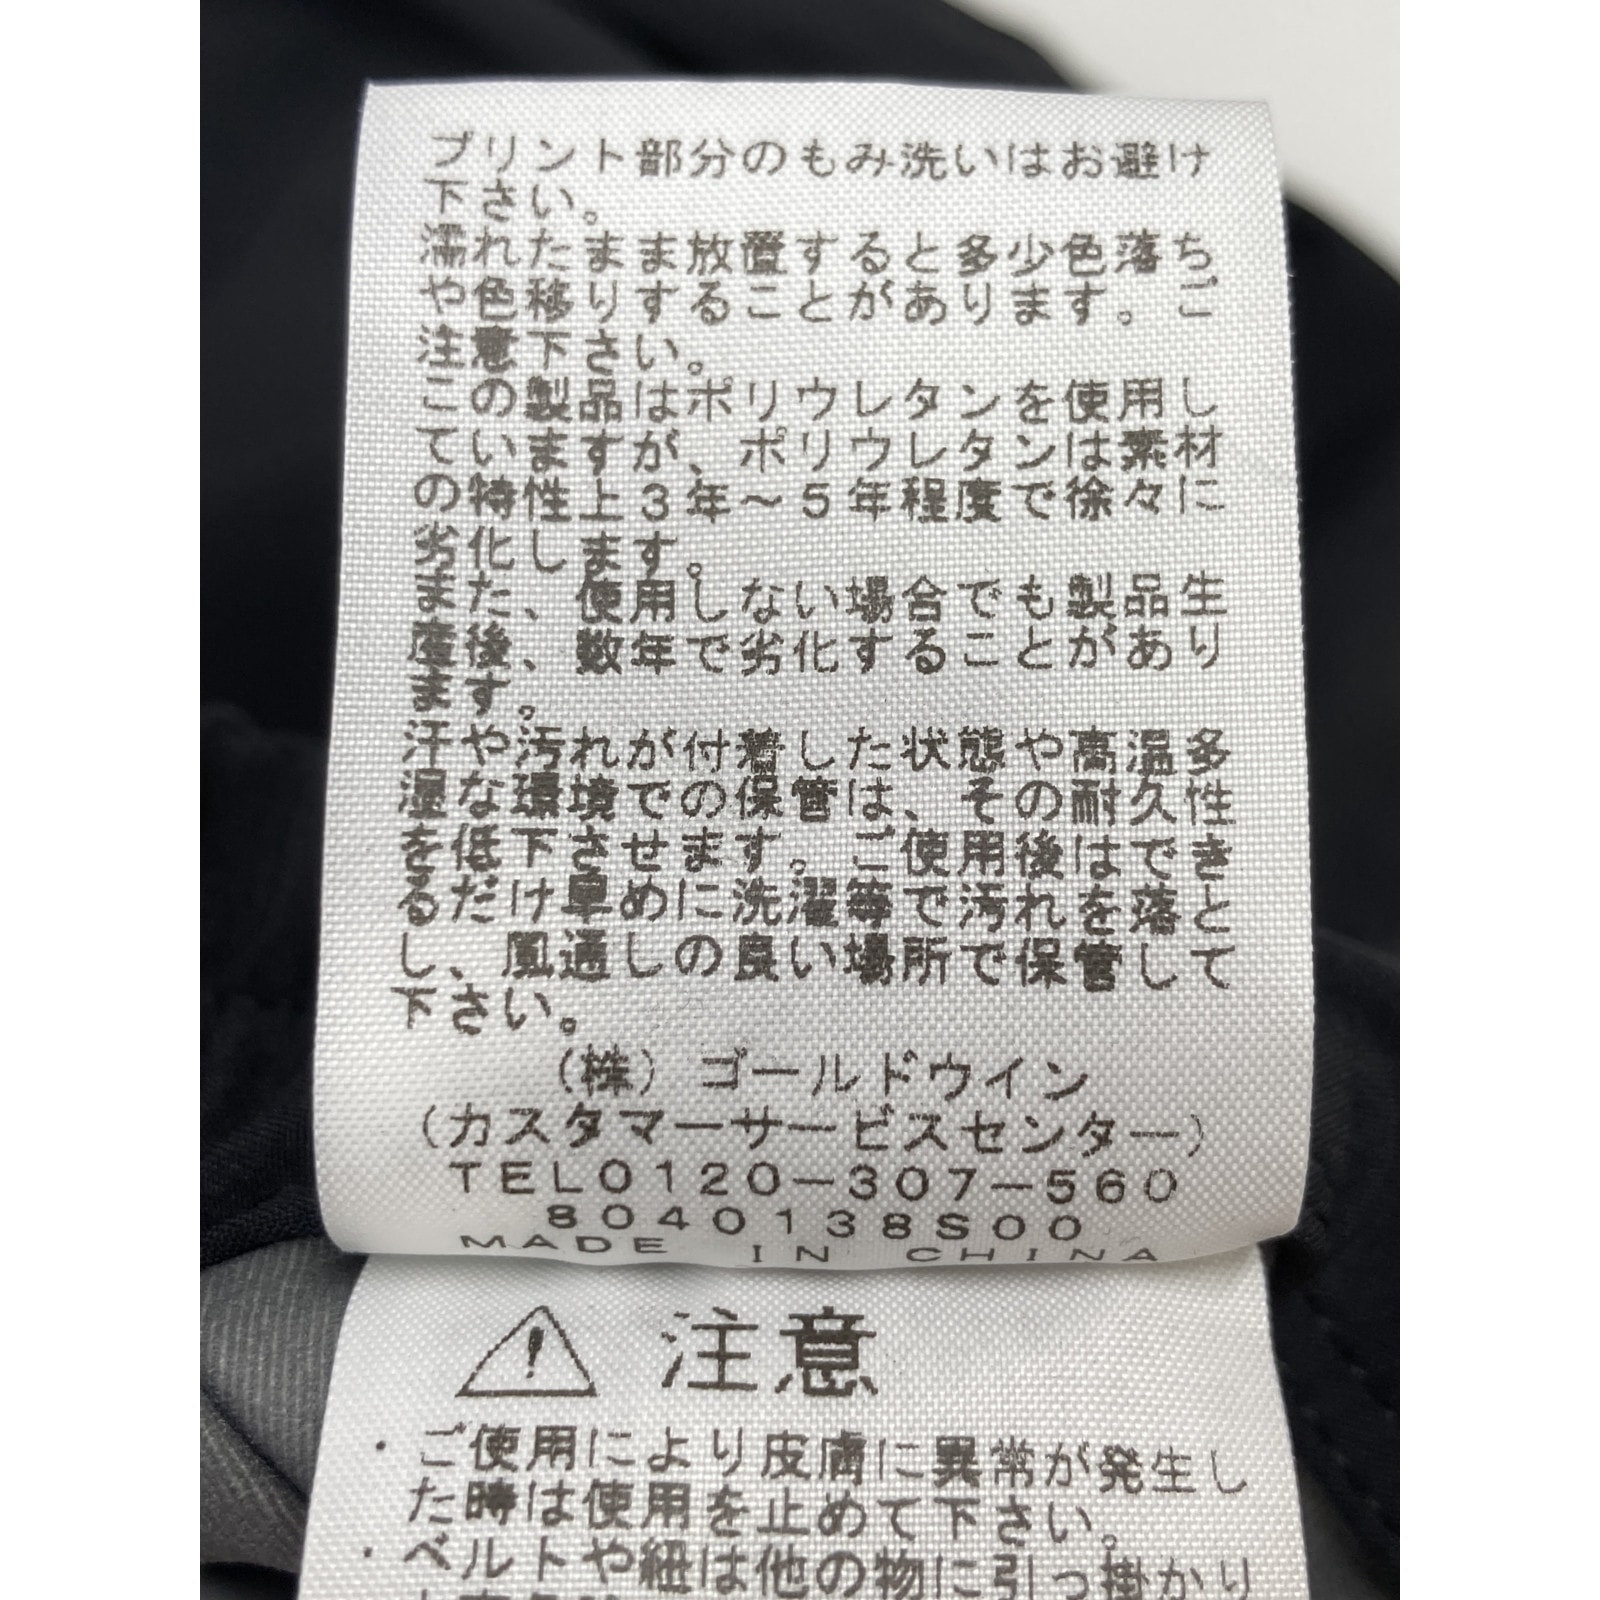 プリント部分のもみ洗いはお避け
下さい。
濡れたまま放置すると多少色落ち
や色移りすることがあります。ご
注意下さい。
この製品はポリウレタンを使用し
ていますが、ポリウレタンは素材
の特性上3年～5年程度で徐々に
劣化します。
また、使用しない場合でも製品生
産後、数年で劣化することがあり
ます。
汗や汚れが付着した状態や高温多
湿な環境での保管は、その耐久性
を低下させます。ご使用後はでき
るだけ早めに洗濯等で汚れを落と
し、風通しの良い場所で保管して
下さい。
(株)ゴールドウイン
(カスタマーサービスセンター)
TEL0120-307-560
8040138S00
MADE IN CHINA
注意
・ご使用により皮膚に異常が発生し
た時は使用を止めて下さい。
・ベルトや紐は他の物に引っ掛かり